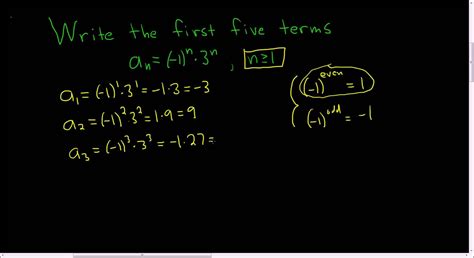 Write the first five terms
aₙ = (-1)ⁿ · 3ⁿ , n ≥ 1
a₁ = (-1)¹ · 3¹ = -1 · 3 = -3
a₂ = (-1)² · 3² = 1 · 9 = 9
a₃ = (-1)³ · 3³ = -1 · 27 =
(-1)^even = 1
(-1)^odd = -1